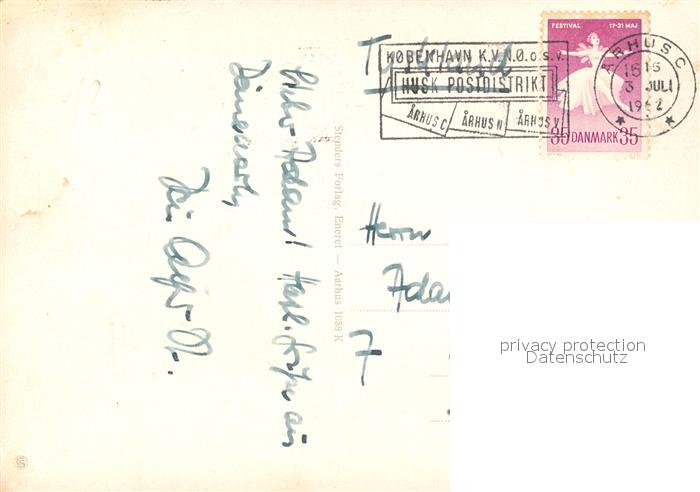 FESTIVAL 17-31 MAJ
35 DANMARK 35
KØBENHAVN K.V.N.Ø.o.s.v.
HUSK POSTDISTRIKT
ÅRHUS C ÅRHUS N ÅRHUS V
ÅRHUS C
1515
3 JULI
1962
Lieber Adam! Herzl. Grüße aus
Dänemark,
Dein
Stenders Forlag. Eneret — Aarhus 1058 K
Herrn
7
privacy protection
Datenschutz